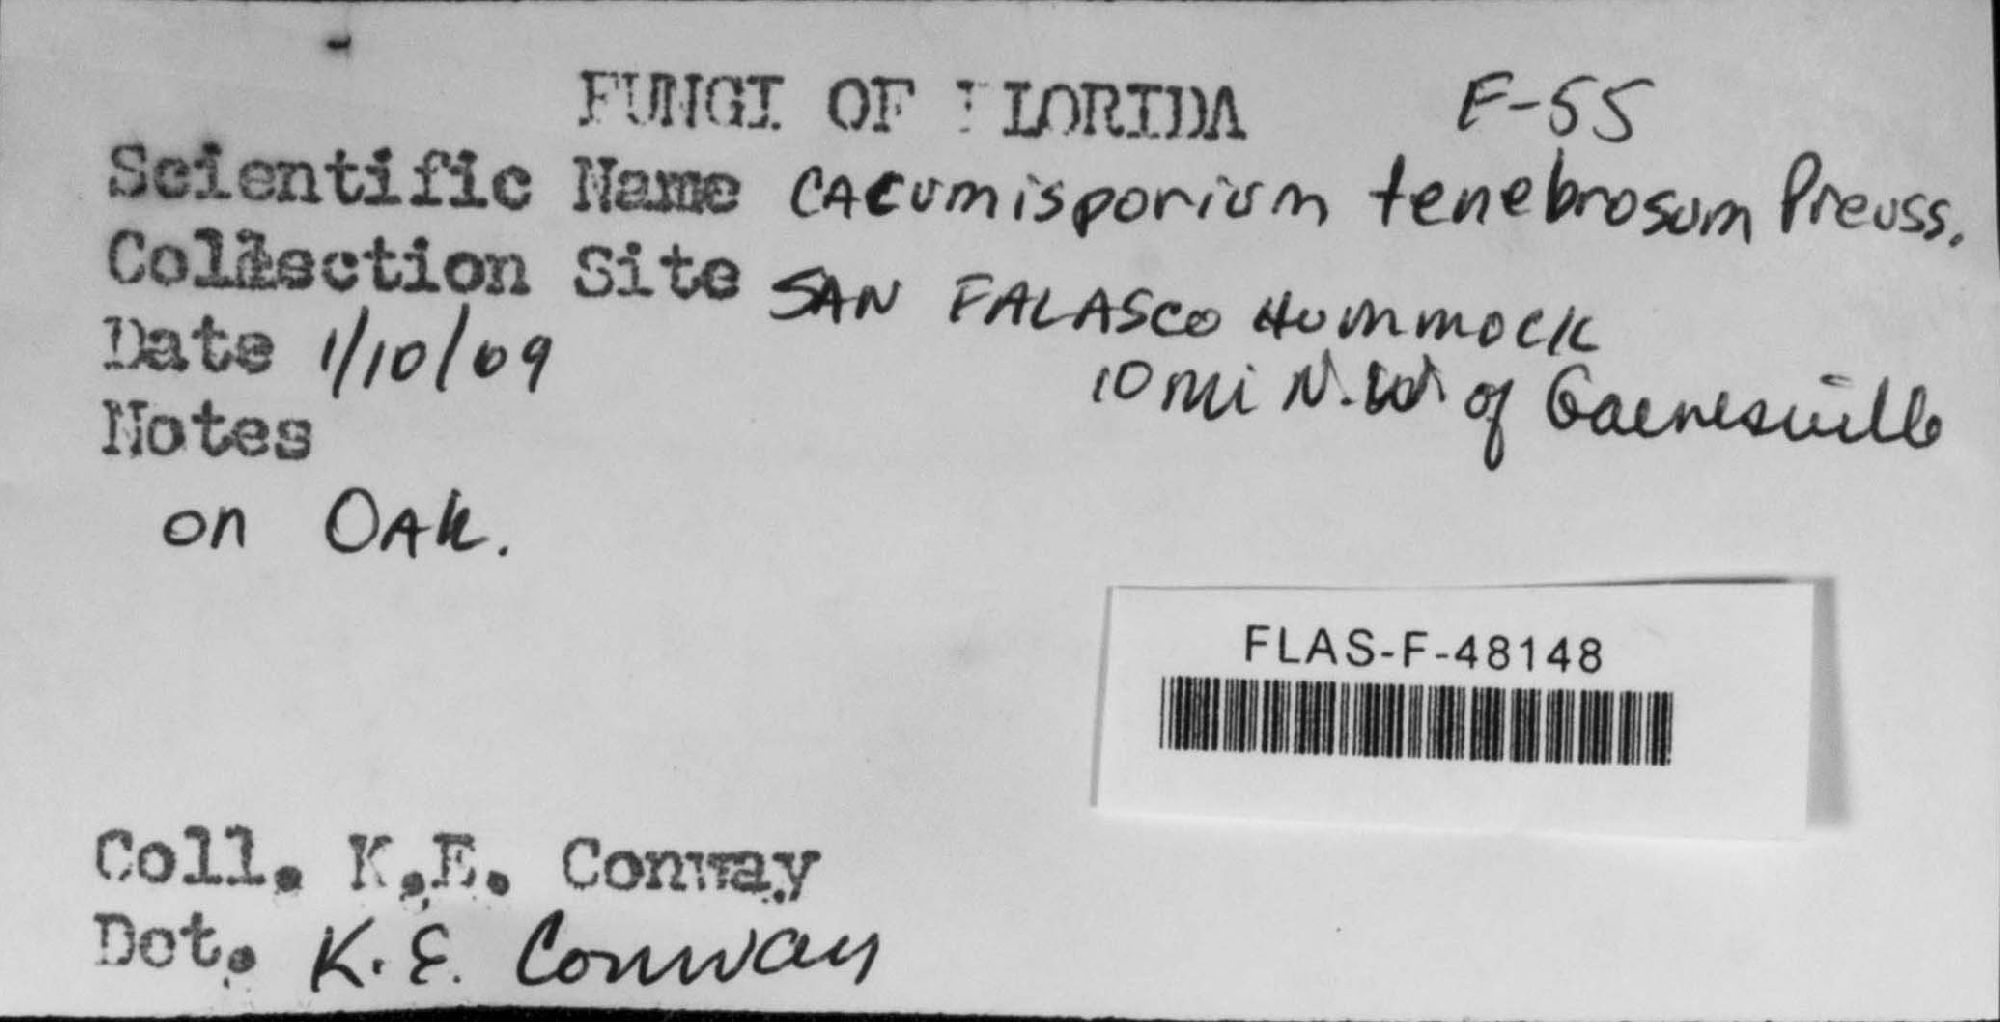 FUNGI OF FLORIDA F-55
Scientific Name CACUMISPORIUM tenebrosum Preuss.
Collection Site SAN FALASCO HUMMOCK
Date 1/10/69 10 mi N.W. of Gainesville
Notes
on OAK.
FLAS-F-48148
Coll. K.E. Conway
Det. K.E. Conway